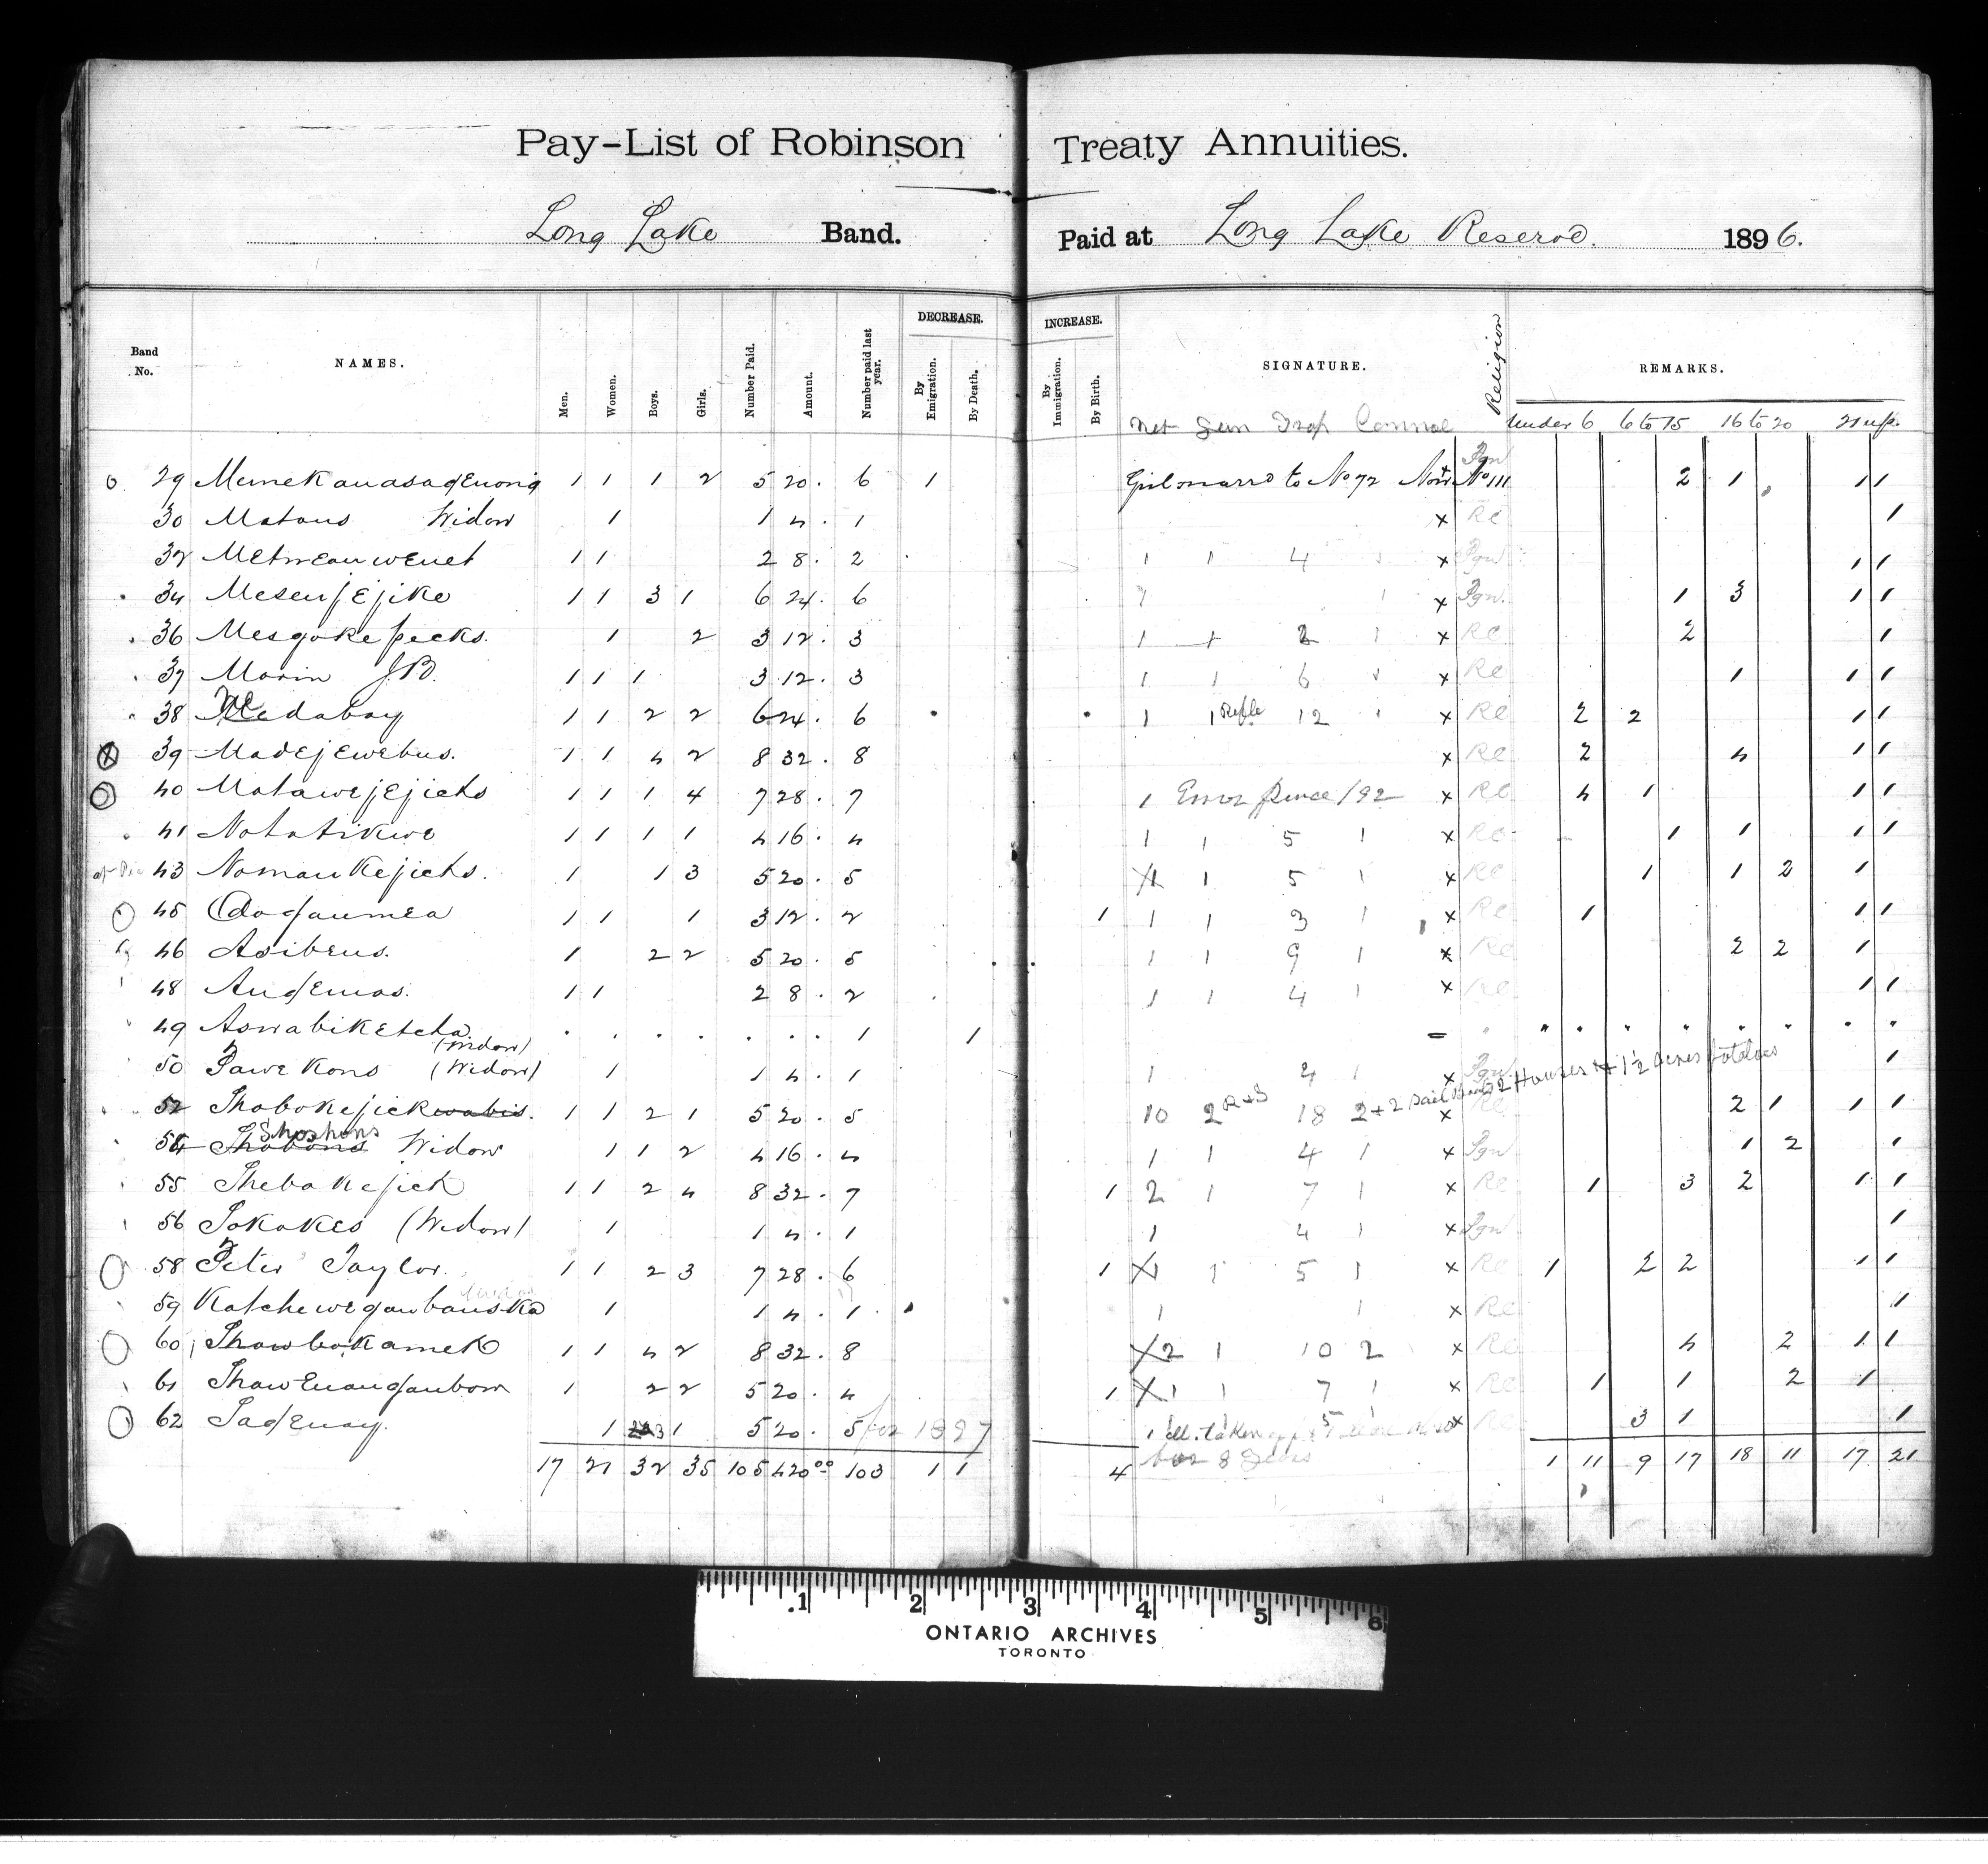 Pay-List of Robinson Treaty Annuities.
Long Lake Band. Paid at Long Lake Reserve. 1896.
Band No. NAMES. Men. Women. Boys. Girls. Number Paid. Amount. Number paid last year. DECREASE. By Emigration. By Death. INCREASE. By Immigration. By Birth. SIGNATURE. Religion REMARKS.
Net Gun Trap Canoe Under 6 6 to 15 16 to 20 21 up.
29 Memekauasagenong 1 1 1 2 5 20. 6 1 Girl marrd to No 72 Now No 111 Pgn 2 1 1 1
30 Matous Widow 1 1 4. 1 x RC 1
32 Metweauwenet 1 1 2 8. 2 1 1 4 1 x Pgn 1 1
34 Mesenjejike 1 1 3 1 6 24. 6 1 x Pgn. 1 3 1 1
36 Mesqakepeeks. 1 2 3 12. 3 1 1 2 1 x RC 2 1
37 Morin J.B. 1 1 1 3 12. 3 1 1 6 1 x RC 1 1 1
38 Medabay 1 1 2 2 6 24. 6 1 1 Rifle 12 1 x RC 2 2 1 1
39 Madejewebus. 1 1 4 2 8 32. 8 x RC 2 4 1 1
40 Matawejejicks 1 1 1 4 7 28. 7 1 Error since /92 x RC 4 1 1 1
41 Natatikwe 1 1 1 1 4 16. 4 1 1 5 1 x RC 1 1 1 1
43 Namankejicks. 1 1 3 5 20. 5 1 1 5 1 x RC 1 1 2 1
45 Odagaumea 1 1 1 3 12. 2 1 1 1 3 1 x RC 1 1 1
46 Asibeus. 1 2 2 5 20. 5 1 1 9 1 x RC 2 2 1
48 Augemas. 1 1 2 8. 2 1 1 4 1 x RC 1 1
49 Aswabiketcha (Widow) 1 1 –
50 Pawekons (Widow) 1 1 4. 1 1 4 1 x Pgn. 1
52 Shabokejickwabis. 1 1 2 1 5 20. 5 10 2 R+S 18 2 + 2 Sail Boats 2 Houses + 1½ acres potatoes x 2 1 1 1
54 Shabons Shoshons Widow 1 1 2 4 16. 4 1 1 4 1 x Pgn 1 2 1
55 Shebakejick 1 1 2 4 8 32. 7 1 2 1 7 1 x RC 1 3 2 1 1
56 Sakakes (Widow) 1 1 4. 1 1 4 1 x Pgn 1
58 Peter Taylor. 1 1 2 3 7 28. 6 1 1 1 5 1 x RC 1 2 2 1 1
59 Katchewegawbauska Widow 1 1 4. 1 1 1 x RC 1
60 Shawbokamek 1 1 4 2 8 32. 8 2 1 10 2 x RC 4 2 1 1
61 Shawenaugaubow 1 2 2 5 20. 4 1 1 1 7 1 x RC 1 1 2 1
62 Sagenay. 1 3 1 5 20. 5 for 1897 1 5 x RC 3 1 1
17 21 32 35 105 420.00 103 1 1 4 1 11 9 17 18 11 17 21
.1 2 3 4 5 6
ONTARIO ARCHIVES
TORONTO